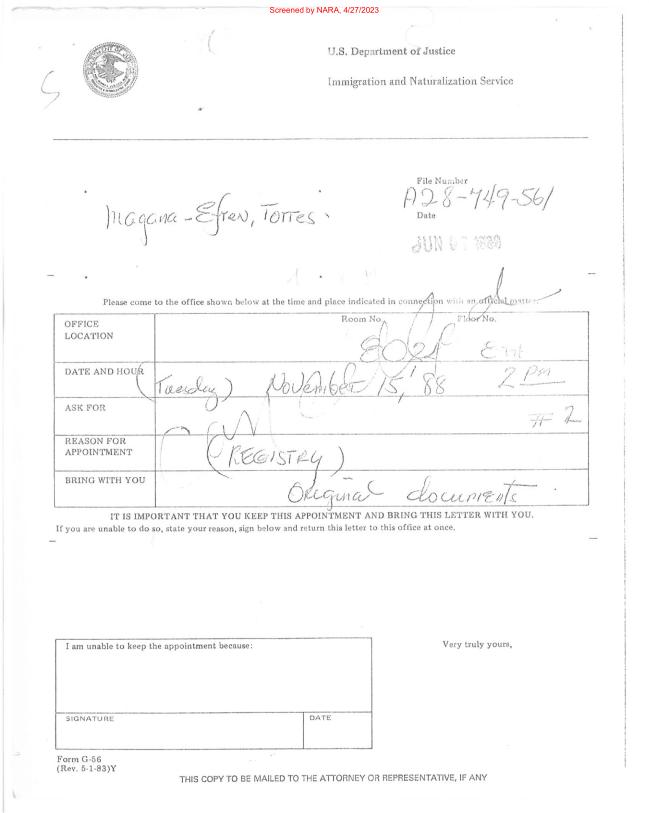 Screened by NARA, 4/27/2023
U.S. Department of Justice
Immigration and Naturalization Service
File Number
A28-749-561
Magana-Efren, Torres
Date
JUN 1988
Please come to the office shown below at the time and place indicated in connection with an official matter.
OFFICE LOCATION
Room No.
Floor No.
DATE AND HOUR
(Tuesday) November 15, '88 2 pm
ASK FOR
# 2
REASON FOR APPOINTMENT
(REGISTRY)
BRING WITH YOU
Original documents
IT IS IMPORTANT THAT YOU KEEP THIS APPOINTMENT AND BRING THIS LETTER WITH YOU.
If you are unable to do so, state your reason, sign below and return this letter to this office at once.
I am unable to keep the appointment because:
Very truly yours,
SIGNATURE
DATE
Form G-56
(Rev. 5-1-83)Y
THIS COPY TO BE MAILED TO THE ATTORNEY OR REPRESENTATIVE, IF ANY